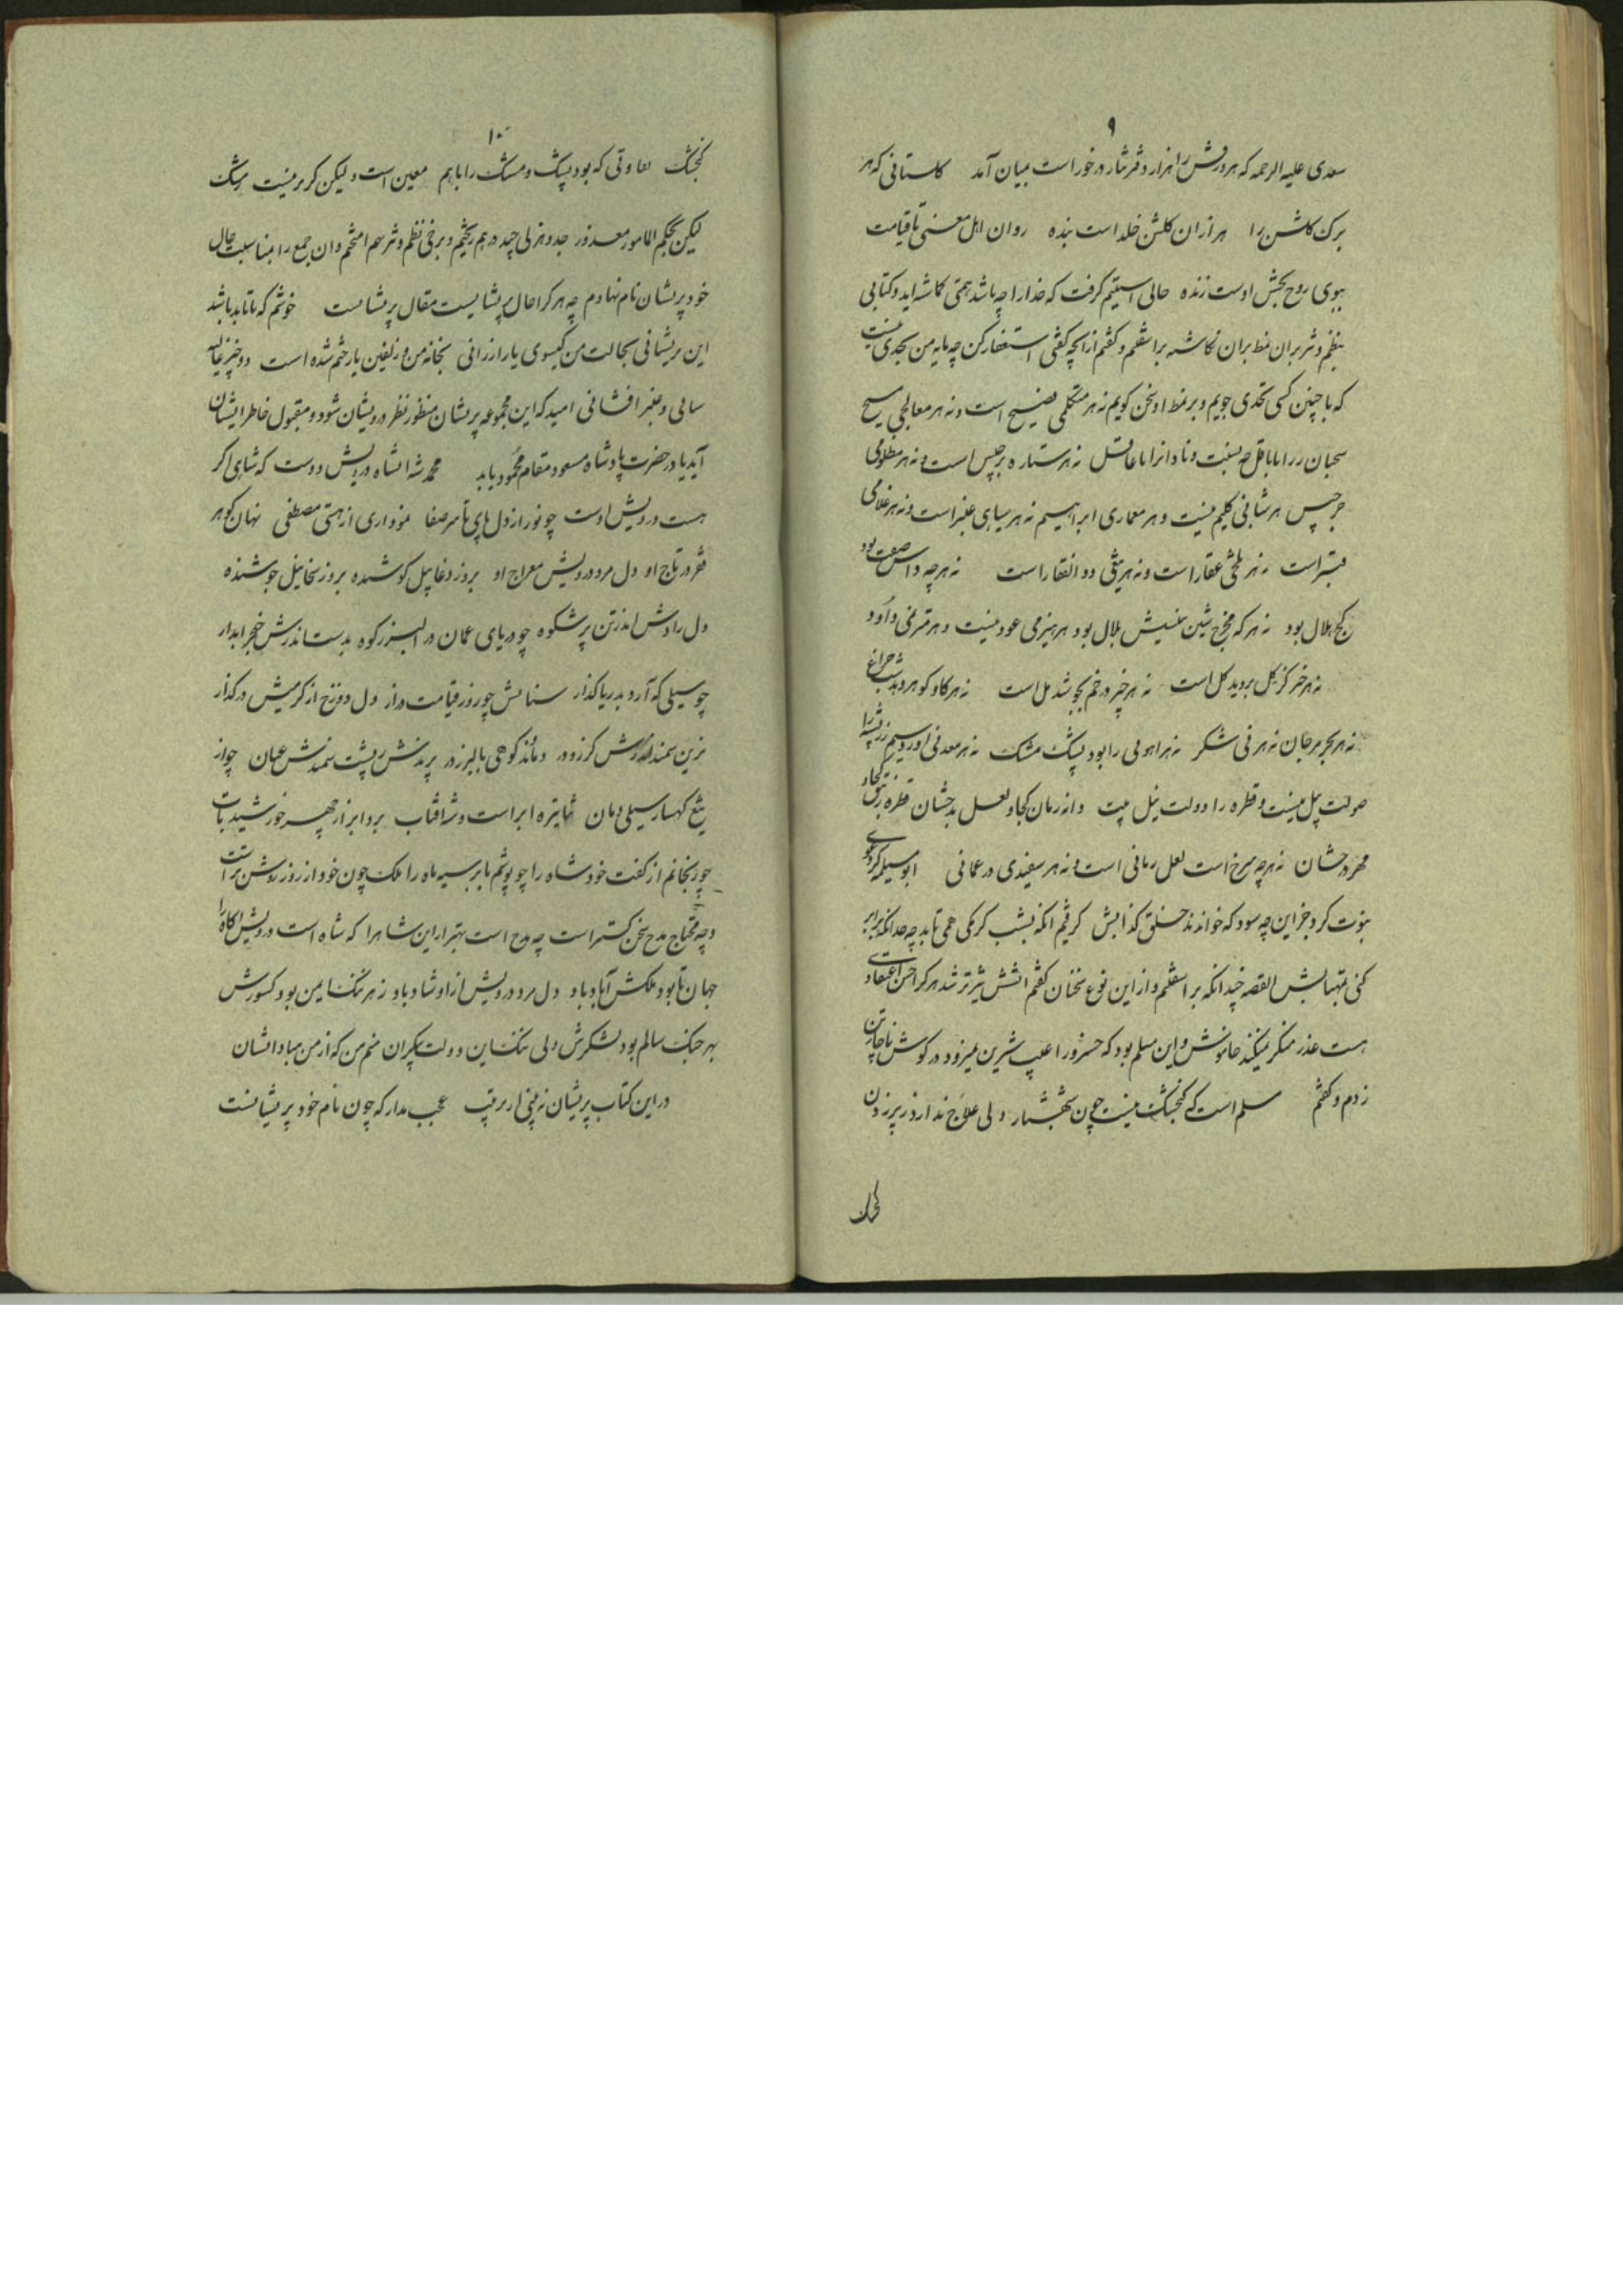 ۹
سعدی علیه الرحمه که هر ورقش را هزار دفتر نثار درخور است بمیان آمد کلستانی که هر
برک کلشن را هزاران کلشن خلد است بنده روان اهل معنی تا قیامت
ببوی روح بخش اوست زنده حالی استینم گرفت که خدارا چه باشد همتی کماشته اید و کتابی
بنظم و نثر بران نمط بران نکاشته براشفتم و گفتم ازانچه گفتی استغفار کن چه مایه من بحدی نیست
که با چنین کسی تحدی جویم و بر نمط او سخن کویم نه هر متکلمی فصیح است و نه هر معالجی مسیح
سحبان را با باقل چه نسبت و نادانرا با عاقل نه هر ستاره برجیس است و نه هر مظلومی
جرجیس هر شبانی کلیم نیست و هر معماری ابراهیم نه هر سیاهی عنبر است و نه هر غلامی
قنبر است نه هر تلخی عقار است و نه هر تیغی ذو الفقار است نه هر چه داس صفت بود
کج هلال بود نه هر که مخرج شین سینش بلال بود هر هیزمی عود نیست و هر مترنمی داود
نه هر خر کز کل بروید کل است نه هر چیز در خم بجوشد مل است نه هر کاو کوهر دهد شب چراغ
نه هر بحر مرجان نه هر نی شکر نه هر اهویی را بود پشک مشک نه هر معدنی اورد سیم و زر پشه را
صولت پیل نیست و قطره را دولت نیل نیت دانه رمان کجا و لعل بدخشان قطره زیبق کجا و
مهر درخشان نه هر چه سرخ است لعل رمانی است و نه هر سفیدی در عمانی ابو مسیلمه کر دعوی
نبوت کرد جز این چه سود که خوانند خلق کذابش کرفتم انکه بشب کرمکی همی تابد چه حد انکه برابر
کنی بمهتابش القصه چندانکه براشفتم و از این نوع سخنان گفتم اتشش تیزتر شد هر کرا حسن اعتقادی
هست عذر منکر نمیکند خاموش و این مسلم بود که خسرو را عیب شیرین نمیرود در کوش ناچار تن
زدم و کفتم مسلم است که کنجشک نیست چون شهباز ولی علاج ندارد ز پر زدن
کنجشک
۱۰
کنجشک تفاوتی که بود پشک و مشک را باهم معین است ولیکن کریز نیست ز مشک
لیکن بحکم المامور معذور جد و هزلی چند درهم ریختم و برخی نظم و نثر بهم امیختم و ان جمع را بمناسبت حال
خود پریشان نام نهادم چه هر کرا حال پریشانیست مقال پریشانست خوشم که تا بابد باشد
این پریشانی بحالت من کیسوی یار ارزانی بخانه من و زلفین یار ختم شده است دو چیز غالیه
سایی و عنبر افشانی امید که این مجموعه پریشان منظور نظر درویشان شود و مقبول خاطر ایشان
آید یا در حضرت پادشاه مسعود مقام محمود یابد محمد شه انشاه درویش دوست که شاهی اکر
هست درویش اوست چو نور از دل پای تا سر صفا نموداری از هستی مصطفی نهان کوهر
فقر در تاج او دل مرد درویش معراج او بروز دغا پیل کوشنده بروز سخا نیل جوشنده
دل رادش اندر تن پر شکوه چو دریای عمان در البرز کوه بدست اندرش خنجر ابدار
چو سیلی که آرد بدریا کذار سنانش چو روز قیامت دراز دل دوزخ از کرمیش در کداز
بزین سمند اندرش کرز و در دماند کوهی بالبرز در پرندش ز پشت سمندش عیان چو از
تیغ کهسار سیلی دمان ثنا تیره ابر است و شه افتاب برد ابر از چهر خورشید تاب
چو رنجانم از کفت خود شاه را چو پوشم بابر سیه ماه را ملک چون خود از روز روشن تر است
و چه محتاج مدح سخن کستر است چه مدح است بهتر از این شاه را که شاه است درویش اکاه را
جهان تا بود ملکش آباد باد دل مرد درویش از او شاد باد ز هر ننک ایمن بود کشورش
بهر جنک سالم بود لشکرش ولی ننک این دولت بیکران منم من که از من مباد انشان
در این کتاب پریشان نه بینی ار ترتیب عجب مدار که چون نام خود پریشانست